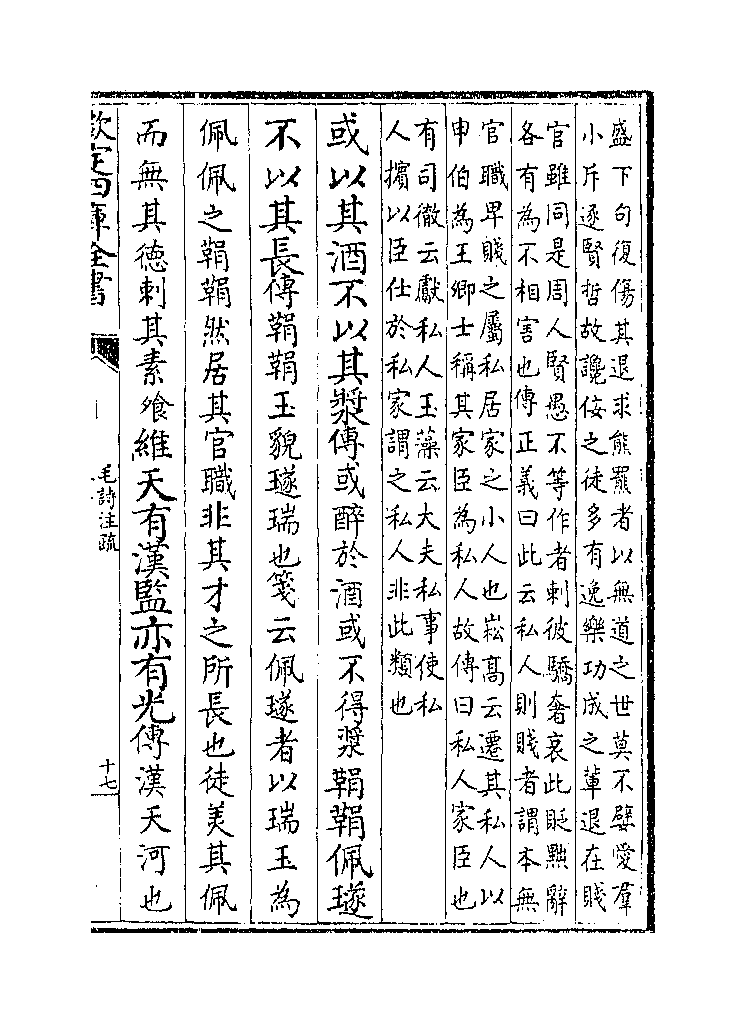 盛下句復傷其退求熊羆者以無道之世莫不嬖愛羣
小斥逐賢哲故讒佞之徒多有逸樂功成之輩退在賤
官雖同是周人賢愚不等作者刺彼驕奢哀此貶黜辭
各有為不相害也傳正義曰此云私人則賤者謂本無
官職卑賤之屬私居家之小人也崧高云遷其私人以
申伯為王卿士稱其家臣為私人故傳曰私人家臣也
有司徹云獻私人玉藻云大夫私事使私
人擯以臣仕於私家謂之私人非此類也
或以其酒不以其漿傳或醉於酒或不得漿鞙鞙佩璲
不以其長傳鞙鞙玉貌璲瑞也箋云佩璲者以瑞玉為
佩佩之鞙鞙然居其官職非其才之所長也徒美其佩
而無其德刺其素飱維天有漢監亦有光傳漢天河也
欽定四庫全書
毛詩注疏
十七